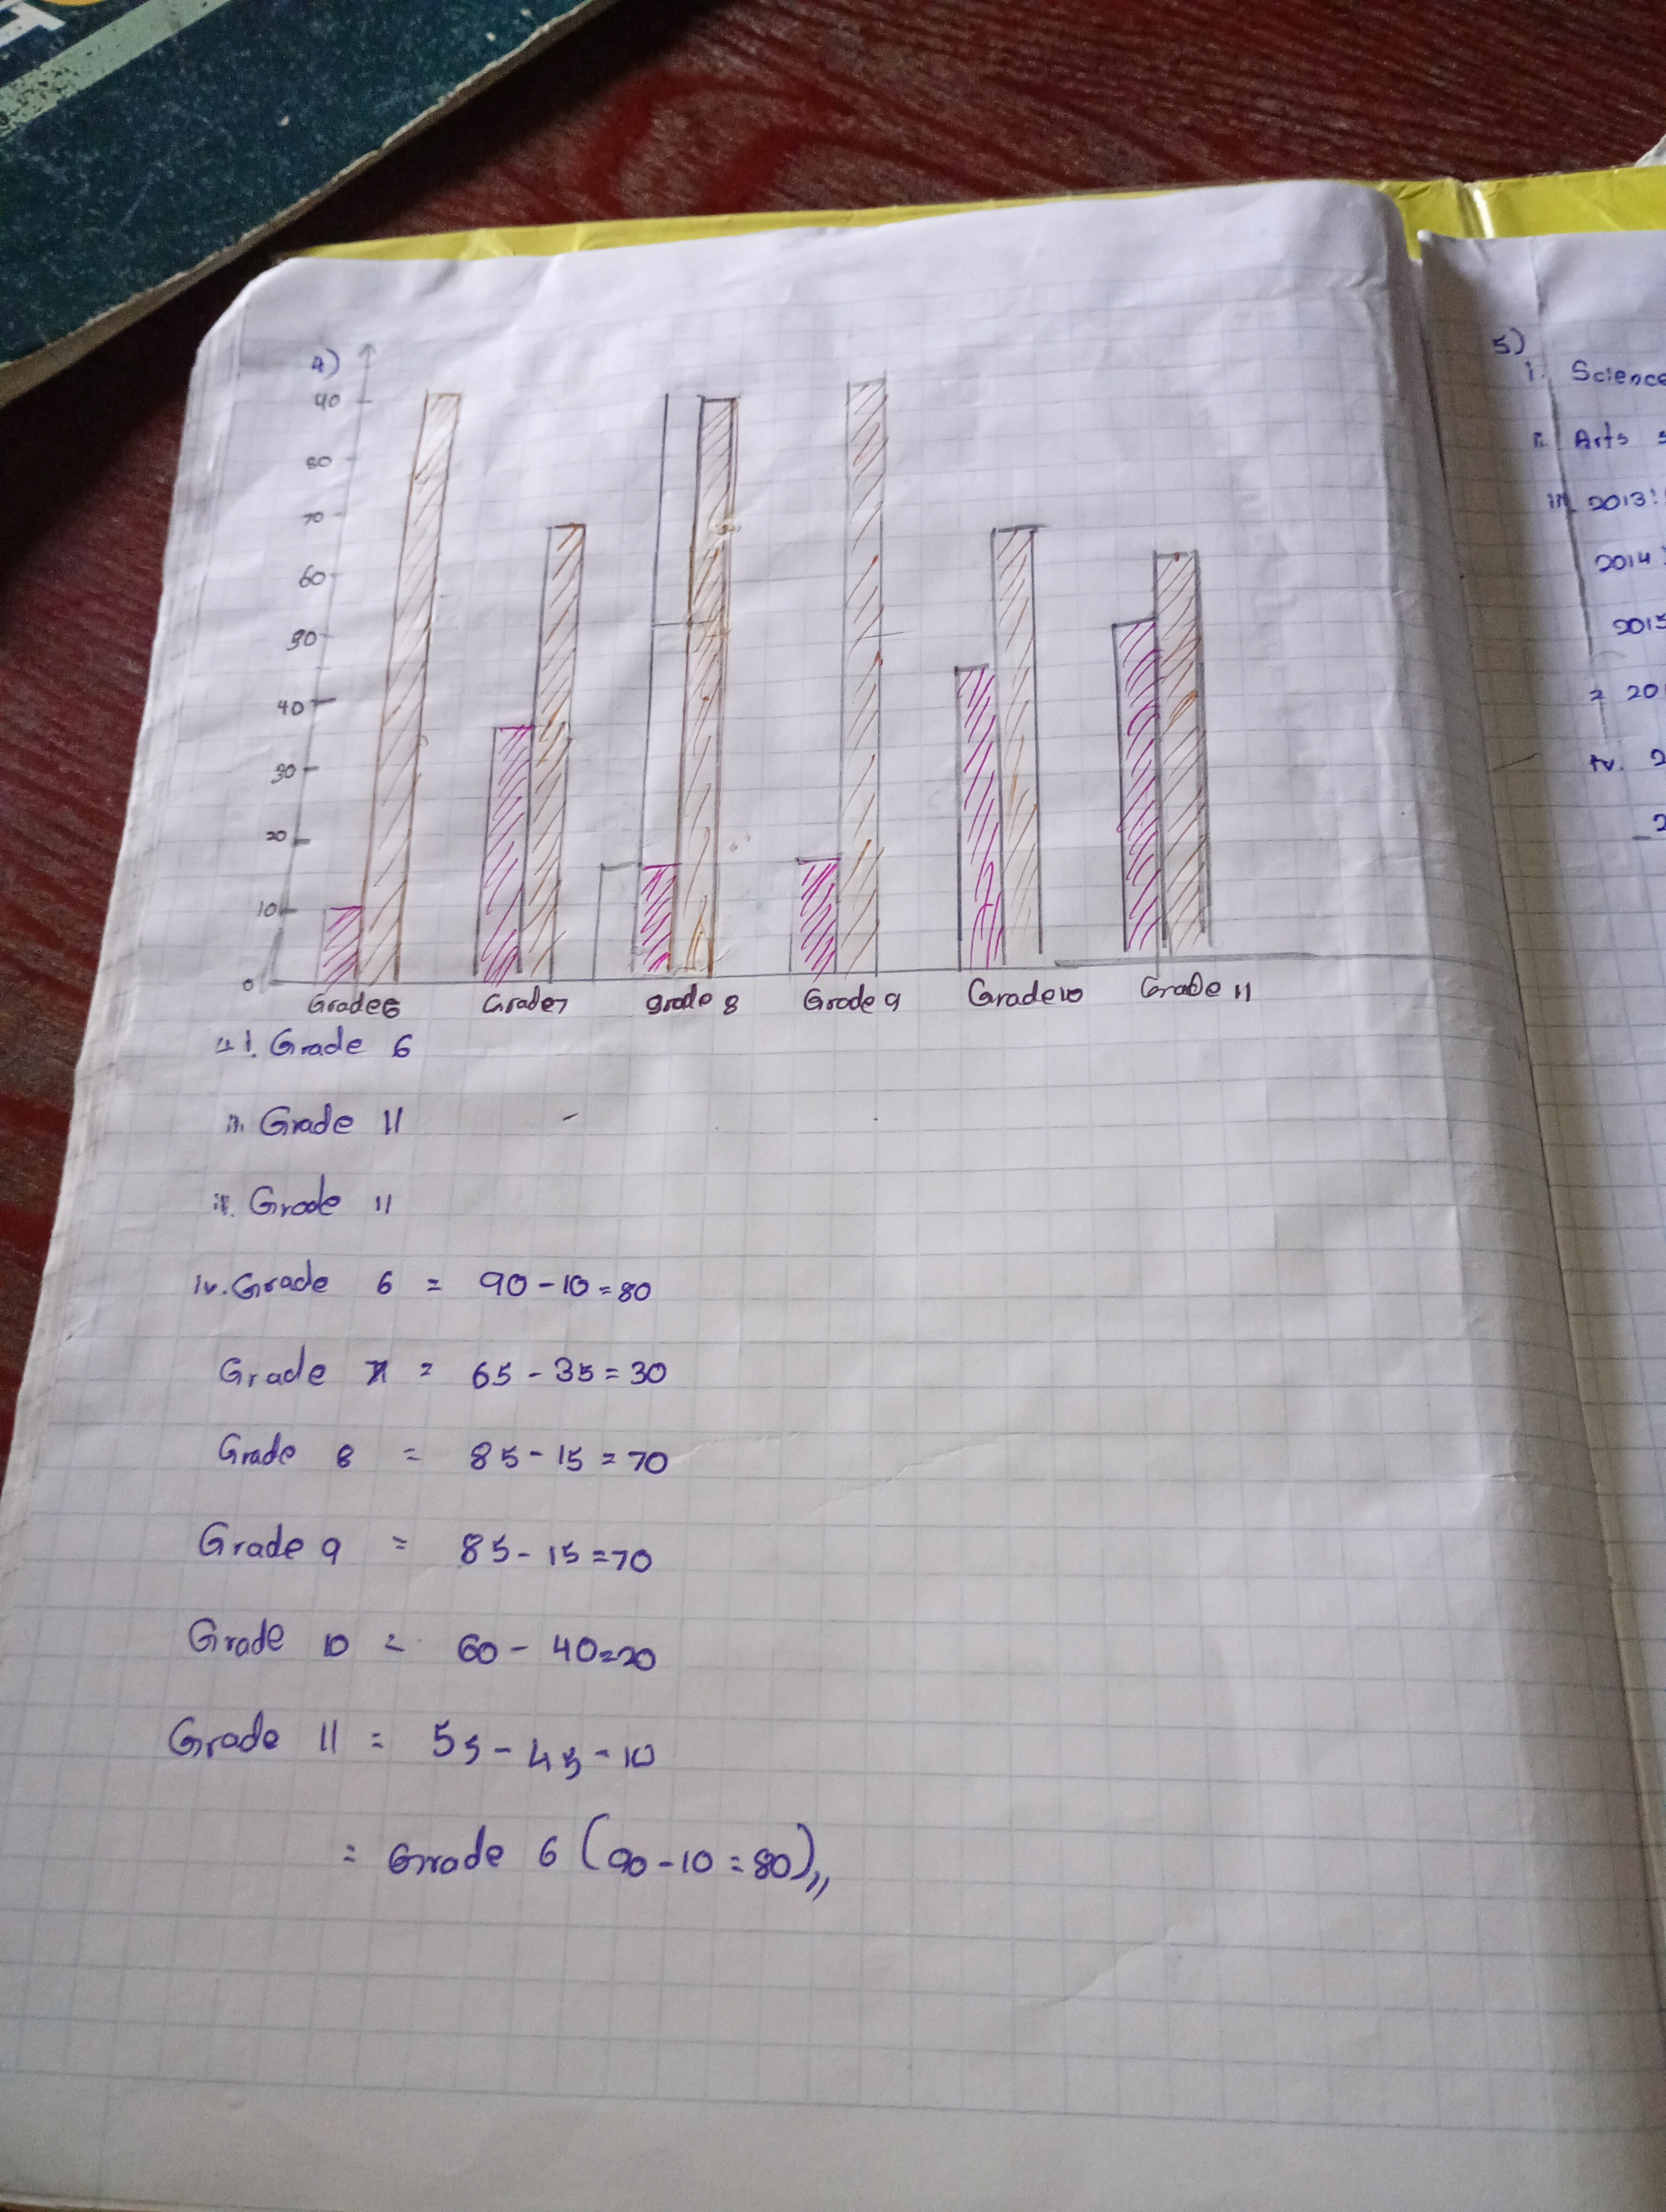 4)
90
80
70
60
50
40
30
20
10
0
Grade6 Grade7 grade 8 Grade 9 Grade10 Grade 11
i. Grade 6
ii. Grade 11
iii. Grade 11
iv. Grade 6 = 90 - 10 = 80
Grade 7 = 65 - 35 = 30
Grade 8 = 85 - 15 = 70
Grade 9 = 85 - 15 = 70
Grade 10 = 60 - 40 = 20
Grade 11 = 55 - 45 - 10
= Grade 6 (90 - 10 = 80),,
5)
i. Science
ii. Arts
iii. 2013:
2014
2015
= 20
iv. 2
2